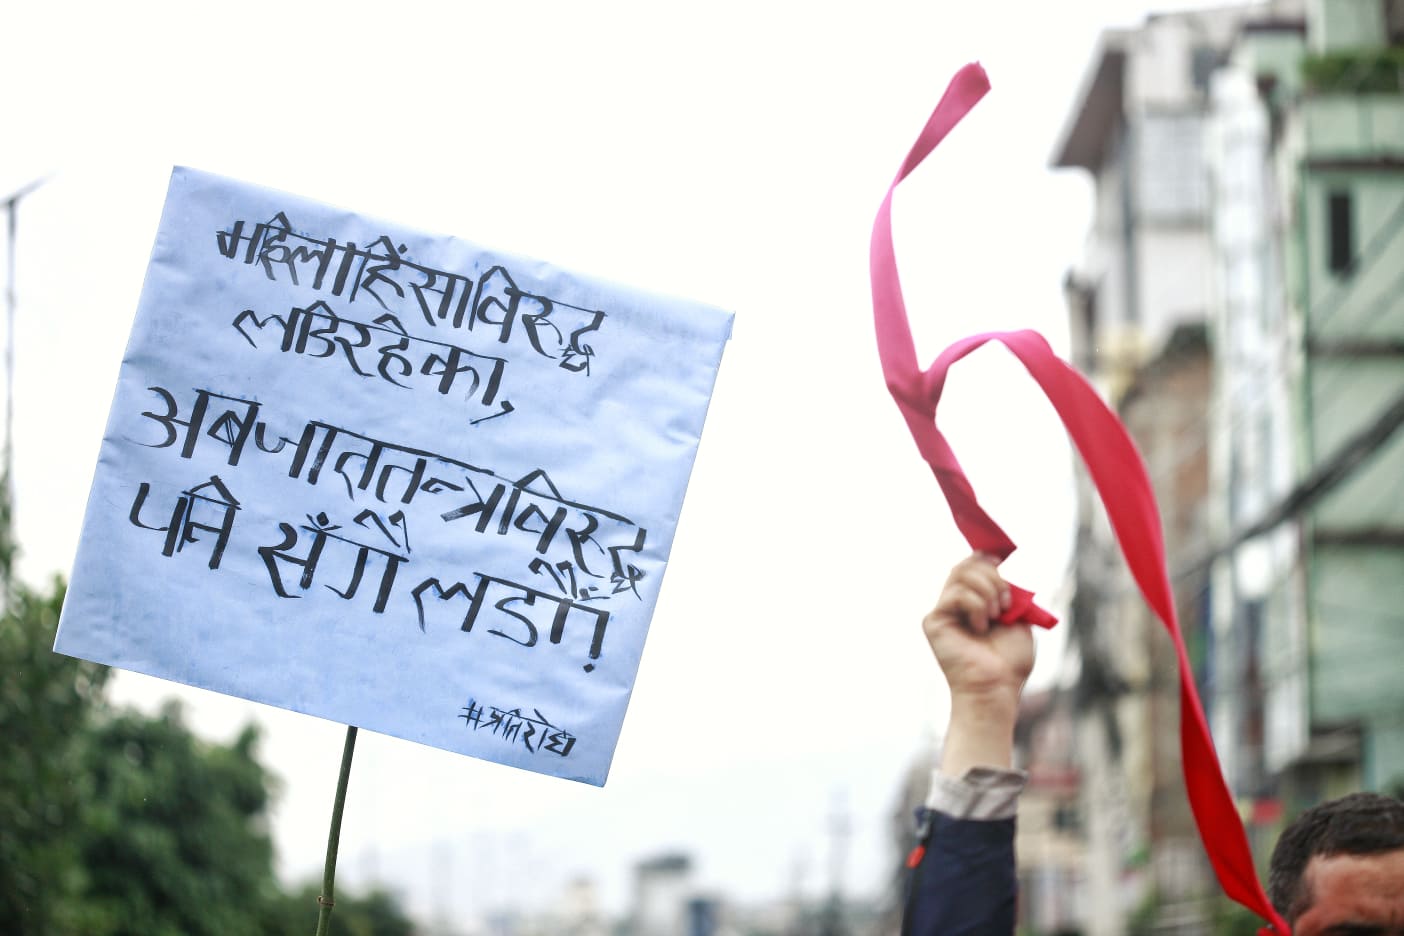 महिला हिंसा विरुद्ध
लडिरहेका,
अब जाततन्त्र विरुद्ध
पनि सँगै लडौं!
#प्रतिरोध